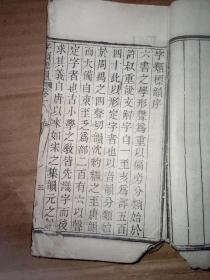 字類標韻序
六書之學形聲爲重以偏旁分類始於
許叔重說文解字自一至亥爲部五百
四十此以形定字者也以音韻分類始
於周禺之四聲切韻沈約繼之至唐韻
而大備自東至乏爲部二百有六以聲
定字者也古小學之敎皆先識字而後
求其義自唐以來如宋之集韻元之